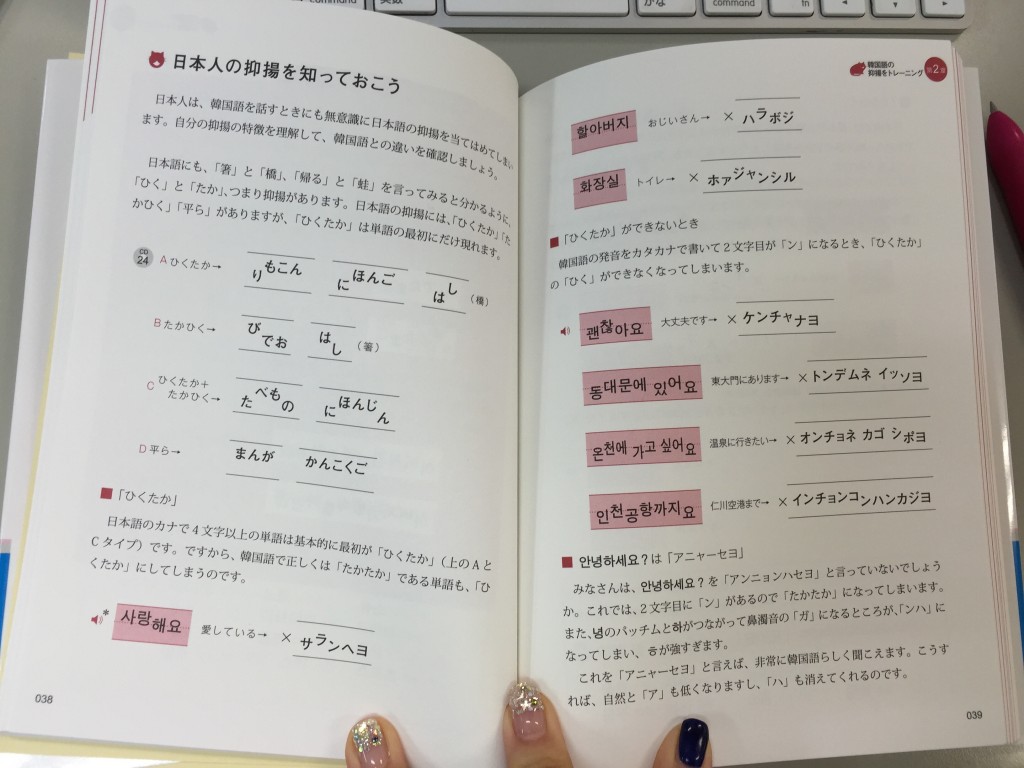 command
英数
かな
command
fn
日本人の抑揚を知っておこう
日本人は、韓国語を話すときにも無意識に日本語の抑揚を当てはめてしまい
ます。自分の抑揚の特徴を理解して、韓国語との違いを確認しましょう。
日本語にも、「箸」と「橋」、「帰る」と「蛙」を言ってみると分かるように、
「ひく」と「たか」、つまり抑揚があります。日本語の抑揚には、「ひくたか」「た
かひく」「平ら」がありますが、「ひくたか」は単語の最初にだけ現れます。
CD 24
A ひくたか→ りもこん にほんご はし (橋)
B たかひく→ びでお はし (箸)
C ひくたか+
たかひく→ たべもの にほんじん
D 平ら→ まんが かんこくご
■「ひくたか」
日本語のカナで4文字以上の単語は基本的に最初が「ひくたか」(上のAと
Cタイプ)です。ですから、韓国語で正しくは「たかたか」である単語も、「ひ
くたか」にしてしまうのです。
* 사랑해요 愛している→ × サランヘヨ
038
韓国語の
抑揚をトレーニング 第2章
할아버지 おじいさん→ × ハラボジ
화장실 トイレ→ × ホァジャンシル
■「ひくたか」ができないとき
韓国語の発音をカタカナで書いて2文字目が「ン」になるとき、「ひくたか」
の「ひく」ができなくなってしまいます。
괜찮아요 大丈夫です→ × ケンチャナヨ
동대문에 있어요 東大門にあります→ × トンデムネ イッソヨ
온천에 가고 싶어요 温泉に行きたい→ × オンチョネ カゴ シポヨ
인천공항까지요 仁川空港まで→ × インチョンコンハンカジヨ
■ 안녕하세요?は「アニャーセヨ」
みなさんは、안녕하세요?を「アンニョンハセヨ」と言っていないでしょう
か。これでは、2文字目に「ン」があるので「たかたか」になってしまいます。
また、녕のパッチムと하がつながって鼻濁音の「ガ」になるところが、「ンハ」に
なってしまい、ㅎが強すぎます。
これを「アニャーセヨ」と言えば、非常に韓国語らしく聞こえます。こうす
れば、自然と「ア」も低くなりますし、「ハ」も消えてくれるのです。
039